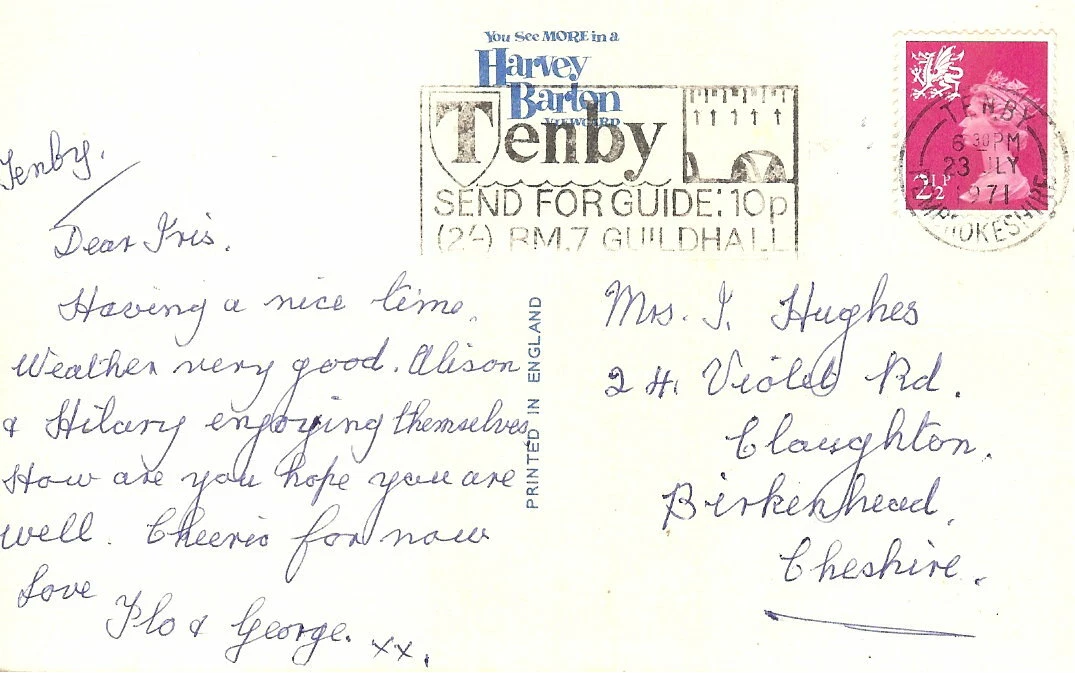 You See MORE in a
Harvey
Barton
VIEWCARD
Tenby
SEND FOR GUIDE: 10p
(2/-) RM.7 GUILDHALL
2½P
TENBY
6 30 PM
23 JLY
1971
PEMBROKESHIRE
Tenby.
Dear Iris.
Having a nice time.
Weather very good. Alison
& Hilary enjoying themselves
How are you hope you are
well. Cheerio for now
Love
Flo & George. xx.
PRINTED IN ENGLAND
Mrs. I. Hughes
24. Violet Rd.
Claughton.
Birkenhead.
Cheshire.